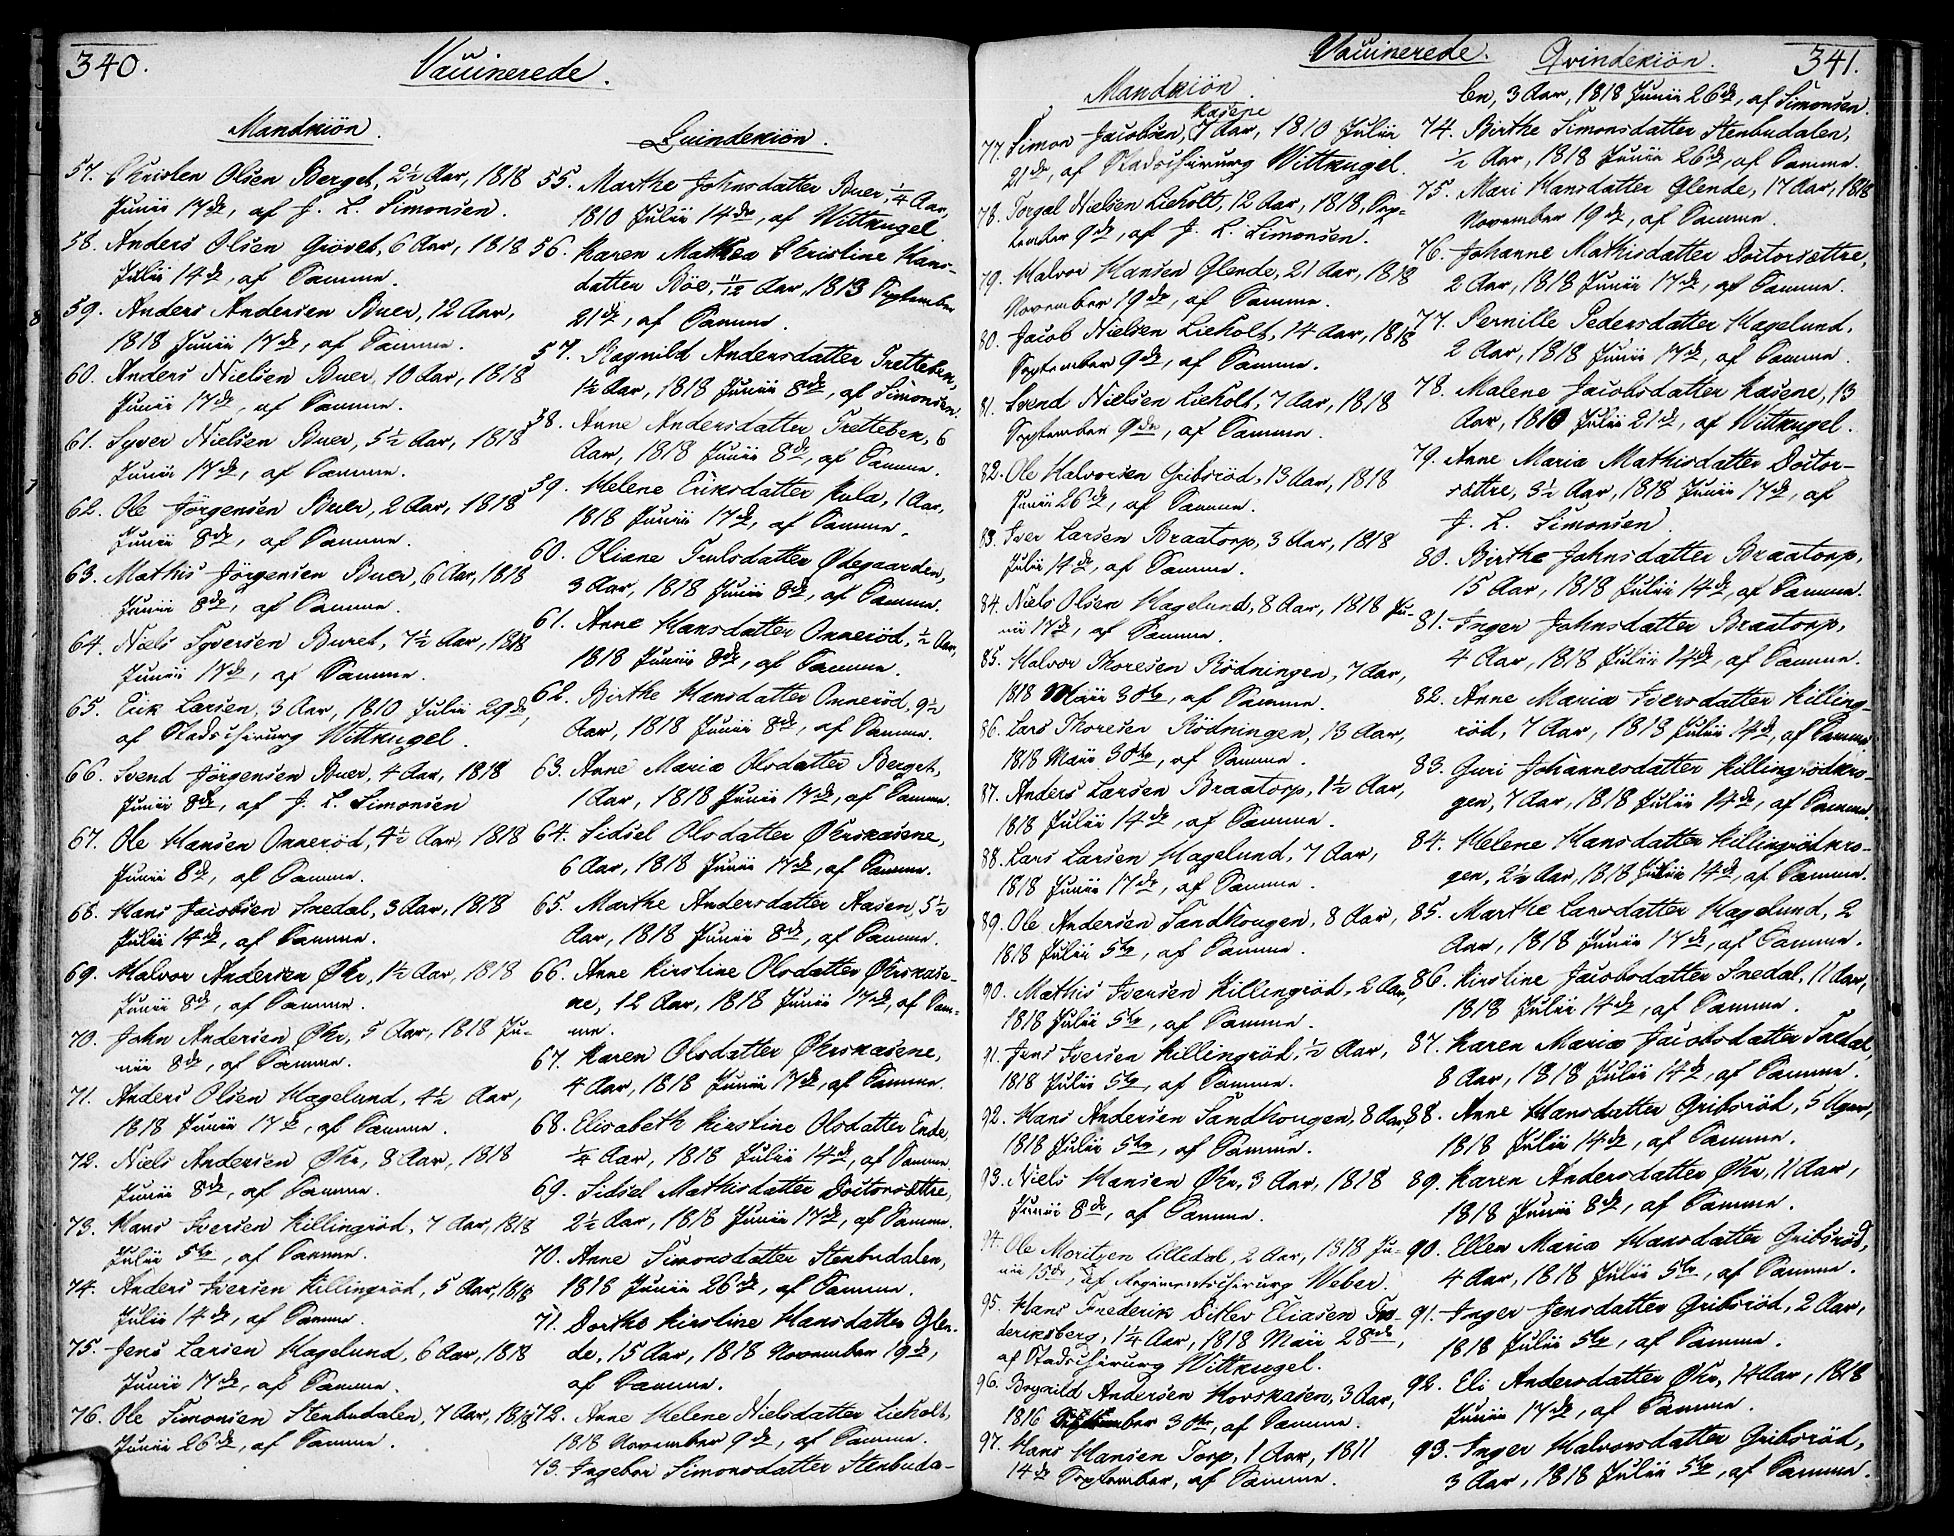 340.
Vaccinerede.
Mandkiön.
57. Christen Olsen Berget, 2½ Aar, 1818
Junii 17de, af J. L. Simonsen.
58. Anders Olsen Giövet, 6 Aar, 1818
Julii 14de, af Samme.
59. Anders Andersen Buer, 12 Aar,
1818 Junii 17de, af Samme.
60. Anders Nielsen Buer, 10 Aar, 1818
Junii 17de, af Samme.
61. Syver Nielsen Buer, 5½ Aar, 1818
Junii 17de, af Samme.
62. Ole Jörgensen Buer, 2 Aar, 1818
Junii 8de, af Samme.
63. Mathis Jörgensen Buer, 6 Aar, 1818
Junii 8de, af Samme.
64. Niels Syversen Buret, 7½ Aar, 1818
Junii 17de, af Samme.
65. Erik Larsen, 3 Aar, 1810 Julii 29de,
af Stadschirurg Wittkugel.
66. Svend Jörgensen Buer, 4 Aar, 1818
Junii 8de, af J. L. Simonsen
67. Ole Hansen Onneröd, 4½ Aar, 1818
Junii 8de, af Samme.
68. Hans Jacobsen Snedal, 3 Aar, 1818
Julii 14de, af Samme.
69. Halvor Andersen Øhr, 1½ Aar, 1818
Junii 8de, af Samme.
70. John Andersen Øhr, 5 Aar, 1818 Ju-
nii 8de, af Samme.
71. Anders Olsen Hagelund, 4½ Aar,
1818 Junii 17de, af Samme.
72. Niels Andersen Øhr, 8 Aar, 1818
Junii 8de, af Samme.
73. Hans Iversen Killingröd, 7 Aar, 1818
Julii 5te, af Samme.
74. Anders Iversen Killingröd, 5 Aar, 1818
Julii 14de, af Samme.
75. Jens Larsen Hagelund, 6 Aar, 1818
Junii 17de, af Samme.
76. Ole Simonsen Stenbudalen, 7 Aar, 1818
Junii 26de, af Samme.
Quindekiön.
55. Marthe Johnsdatter Buer, ¼ Aar,
1810 Julii 14de, af Wittkugel
56. Karen Mathea Christine Hans-
datter Böe, 11/12 Aar, 1813 September
21de, af Samme.
57. Ragnild Andersdatter Tretteben,
1½ Aar, 1818 Junii 8de, af Simonsen.
58. Anne Andersdatter Tretteben, 6
Aar, 1818 Junii 8de, af Samme.
59. Helene Eriksdatter Kula, 1 Aar,
1818 Junii 17de, af Samme.
60. Oliane Trulsdatter Ødegaarden,
3 Aar, 1818 Junii 8de, af Samme.
61. Anne Hansdatter Onneröd, ½ Aar,
1818 Junii 8de, af Samme.
62. Birthe Hansdatter Onneröd, 9½
Aar, 1818 Junii 8de, af Samme.
63. Anne Maria Olsdatter Berget,
1 Aar, 1818 Junii 17de, af Samme.
64. Sidsel Olsdatter Øhrskasene,
6 Aar, 1818 Junii 17de, af Samme.
65. Marthe Andersdatter Aasen, 5½
Aar, 1818 Junii 8de, af Samme.
66. Anne Kirstine Olsdatter Øhrskase-
ne, 12 Aar, 1818 Junii 17de, af Sam-
me.
67. Karen Olsdatter Øhrskasene,
4 Aar, 1818 Junii 17de, af Samme.
68. Elisabeth Kirstine Olsdatter Ende,
¼ Aar, 1818 Julii 14de, af Samme.
69. Sidsel Mathisdatter Doctorsættre,
2½ Aar, 1818 Junii 17de, af Samme.
70. Anne Simonsdatter Stenbudalen,
1818 Junii 26de, af Samme.
71. Dorthe Kirstine Hansdatter Glen-
de, 15 Aar, 1818 November 19de,
af Samme.
72. Anne Helene Nielsdatter Lieholt,
1818 November 9de, af Samme.
73. Ingebor Simonsdatter Stenbuda-
Vaccinerede.
341.
Mandkiön.
77. Simon Jacobsen, Kasene 7 Aar, 1810 Julii
21de, af Stadschirurg Wittkugel.
78. Torgal Nielsen Lieholt, 12 Aar, 1818, Sep-
tember 9de, af J. L. Simonsen.
79. Halvor Hansen Glende, 21 Aar, 1818
November 19de, af Samme.
80. Jacob Nielsen Lieholt, 14 Aar, 1818
September 9de, af Samme.
81. Svend Nielsen Lieholt, 7 Aar, 1818
September 9de, af Samme.
82. Ole Halvorsen Gribsröd, 13 Aar, 1818
Junii 26de, af Samme.
83. Iver Larsen Braatorp, 3 Aar, 1818
Julii 14de, af Samme.
84. Niels Olsen Hagelund, 8 Aar, 1818 Ju-
nii 17de, af Samme.
85. Halvor Thoresen Rödningen, 7 Aar,
1818 Maii 30te, af Samme.
86. Lars Thoresen Rödningen, 13 Aar,
1818 Maii 30te, af Samme.
87. Anders Larsen Braatorp, 1½ Aar,
1818 Julii 14de, af Samme.
88. Lars Larsen Hagelund, 7 Aar,
1818 Junii 17de, af Samme.
89. Ole Andersen Sandhougen, 8 Aar,
1818 Julii 5te, af Samme.
90. Mathis Iversen Killingröd, 2 Aar,
1818 Julii 5te, af Samme.
91. Jens Iversen Killingröd, ½ Aar,
1818 Julii 5te, af Samme.
92. Hans Andersen Sandhougen, 8 Aar,
1818 Julii 5te, af Samme.
93. Niels Hansen Øhr, 3 Aar, 1818
Junii 8de, af Samme.
94. Ole Moritzen Lilledal, 2 Aar, 1818 Ju-
nii 15de, af Regimentschirurg Weber.
95. Hans Frederik Ditlev Eliasen Fre-
deriksberg, 1¼ Aar, 1818 Maii 28de,
af Stadschirurg Wittkugel.
96. Brynild Andersen Horskasen, 3 Aar,
1816 September 30te, af Samme.
97. Hans Hansen Torp, 1 Aar, 1811
14de September, af Samme.
Qvindekiön.
len, 3 Aar, 1818 Junii 26de, af Simonsen.
74. Birthe Simonsdatter Stenbudalen,
½ Aar, 1818 Junii 26de, af Samme.
75. Mari Hansdatter Glende, 17 Aar, 1818
November 19de, af Samme.
76. Johanne Mathisdatter Doctorsættre,
2 Aar, 1818 Junii 17de, af Samme.
77. Pernille Pedersdatter Hagelund,
2 Aar, 1818 Junii 17de, af Samme
78. Malene Jacobsdatter Kasene, 13
Aar, 1810 Julii 21de, af Wittkugel.
79. Anne Maria Mathisdatter Doctor-
sættre, 3½ Aar, 1818 Junii 17de, af
J. L. Simonsen.
80. Birthe Johnsdatter Braatorp,
15 Aar, 1818 Julii 14de, af Samme.
81. Inger Johnsdatter Braatorp,
4 Aar, 1818 Julii 14de, af Samme.
82. Anne Maria Iversdatter Killing-
röd, 7 Aar, 1818 Julii 14de, af Samme
83. Guri Johannesdatter Killingrödkro-
gen, 7 Aar, 1818 Julii 14de, af Samme.
84. Helene Hansdatter Killingrödkro-
gen, 2½ Aar, 1818 Julii 14de, af Samme.
85. Marthe Larsdatter Hagelund, 2
Aar, 1818 Junii 17de, af Samme.
86. Kirstine Jacobsdatter Snedal, 11 Aar,
1818 Julii 14de, af Samme.
87. Karen Maria Jacobsdatter Snedal,
8 Aar, 1818 Julii 14de, af Samme.
88. Anne Hansdatter Gribsröd, 5 Uger,
1818 Julii 14de, af Samme.
89. Karen Andersdatter Øhr, 11 Aar,
1818 Junii 8de, af Samme.
90. Ellen Maria Hansdatter Gribsröd,
4 Aar, 1818 Julii 5te, af Samme.
91. Inger Jensdatter Gribsröd, 2 Aar,
1818 Julii 5te, af Samme.
92. Eli Andersdatter Øhr, 14 Aar, 1818
Junii 17de, af Samme.
93. Inger Halvorsdatter Gribsröd,
3 Aar, 1818 Julii 5te, af Samme.